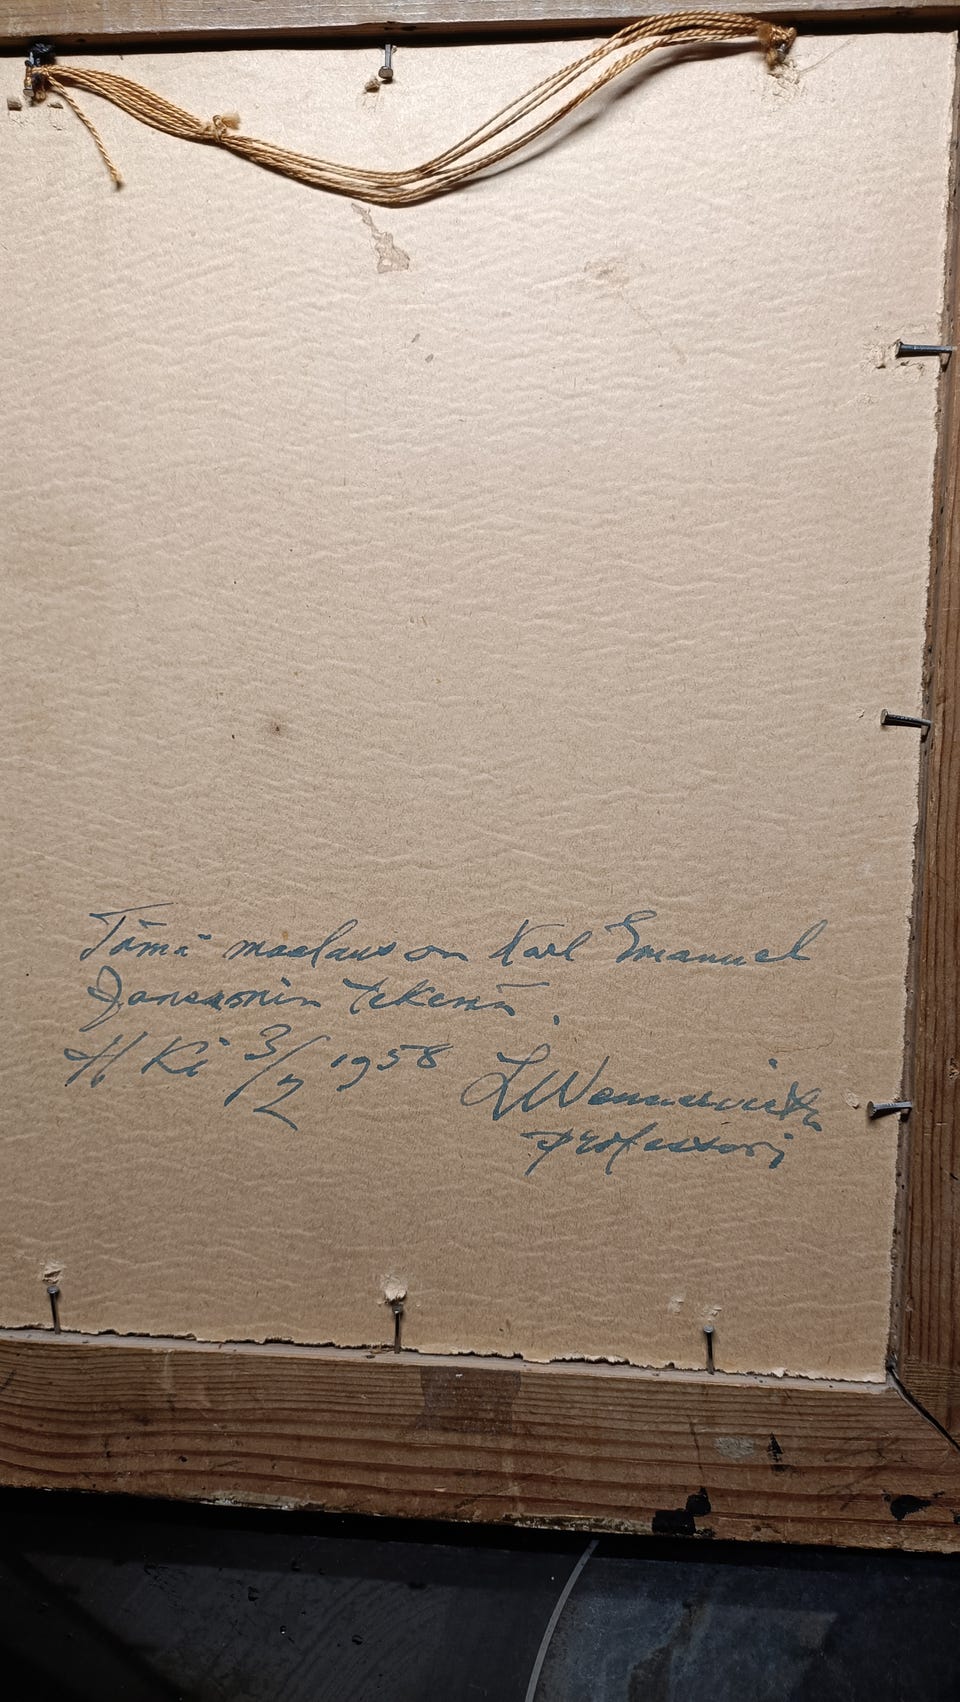 Tämä maalaus on Karl Emanuel
Janssonin tekemä.
H Ki 3/7 1958 L Wennervirta
professori